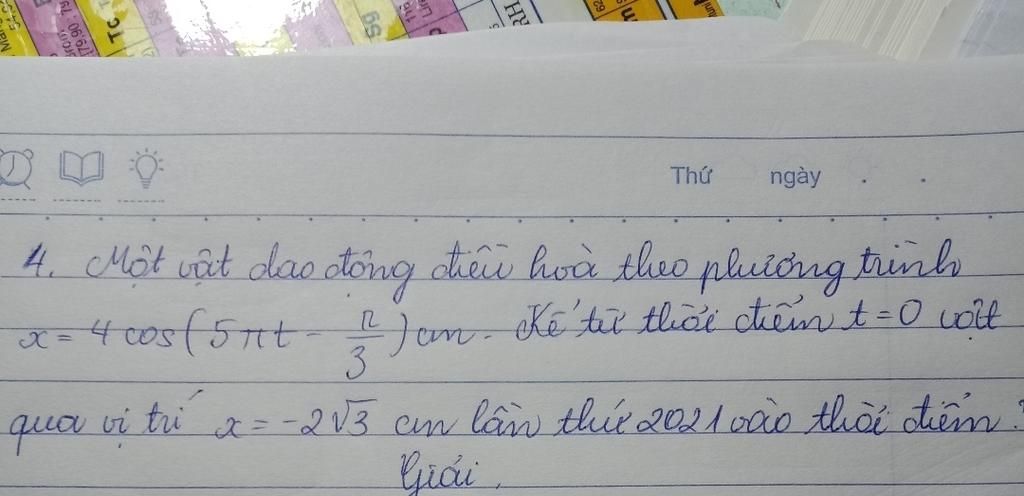 Thứ ngày . .
4. Một vật dao động điều hoà theo phương trình
x = 4 cos(5πt - π/3) cm. Kể từ thời điểm t = 0 vật
qua vị trí x = -2√3 cm lần thứ 2021 vào thời điểm?
Giải.